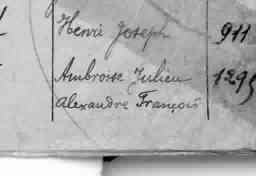 Henri Joseph 911
Ambroise Julien 1295
Alexandre François